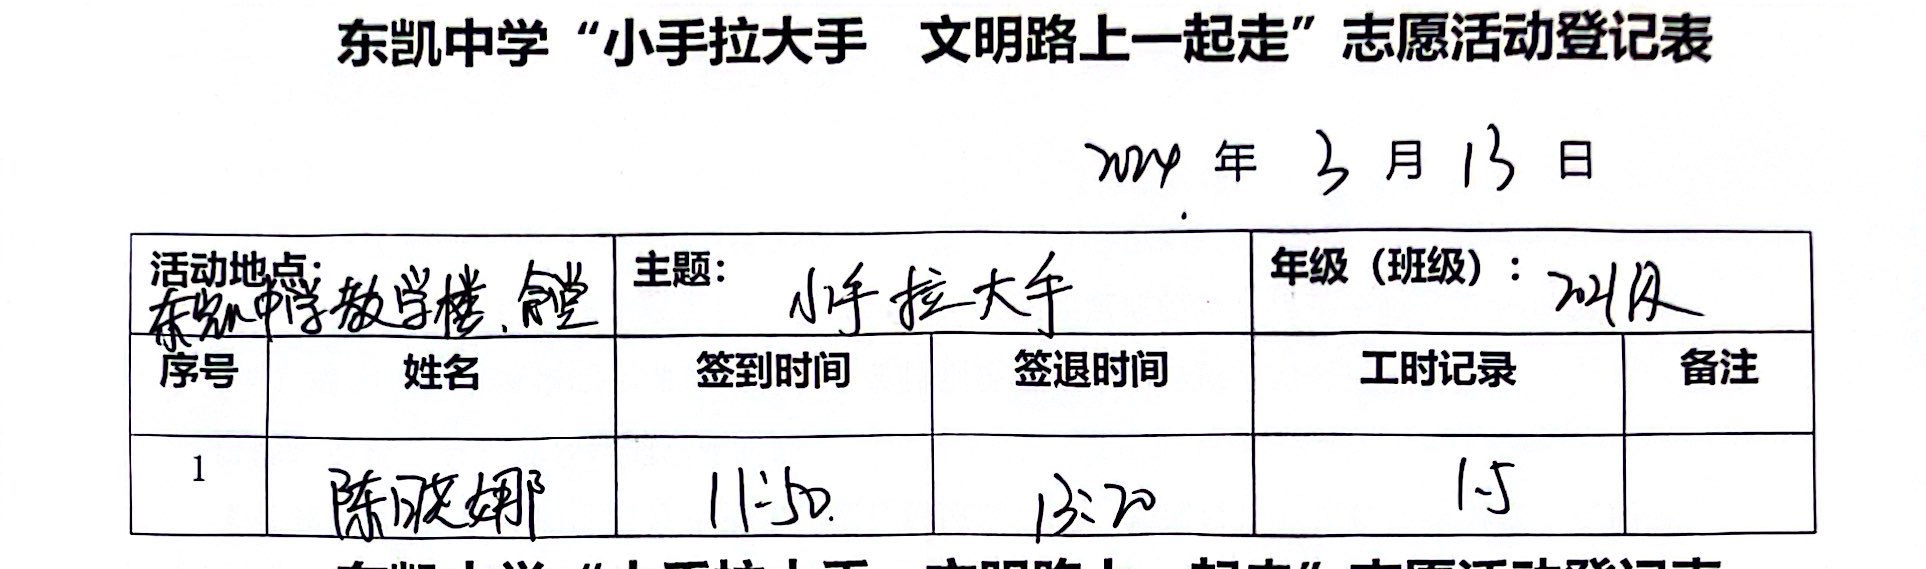 东凯中学“小手拉大手 文明路上一起走”志愿活动登记表
2024 年 3 月 13 日
活动地点: 东凯中学教学楼、食堂 主题: 小手拉大手 年级（班级）: 2021级
序号 姓名 签到时间 签退时间 工时记录 备注
1 陈晓娜 11:50 13:20 1.5
东凯中学“小手拉大手 文明路上一起走”志愿活动登记表